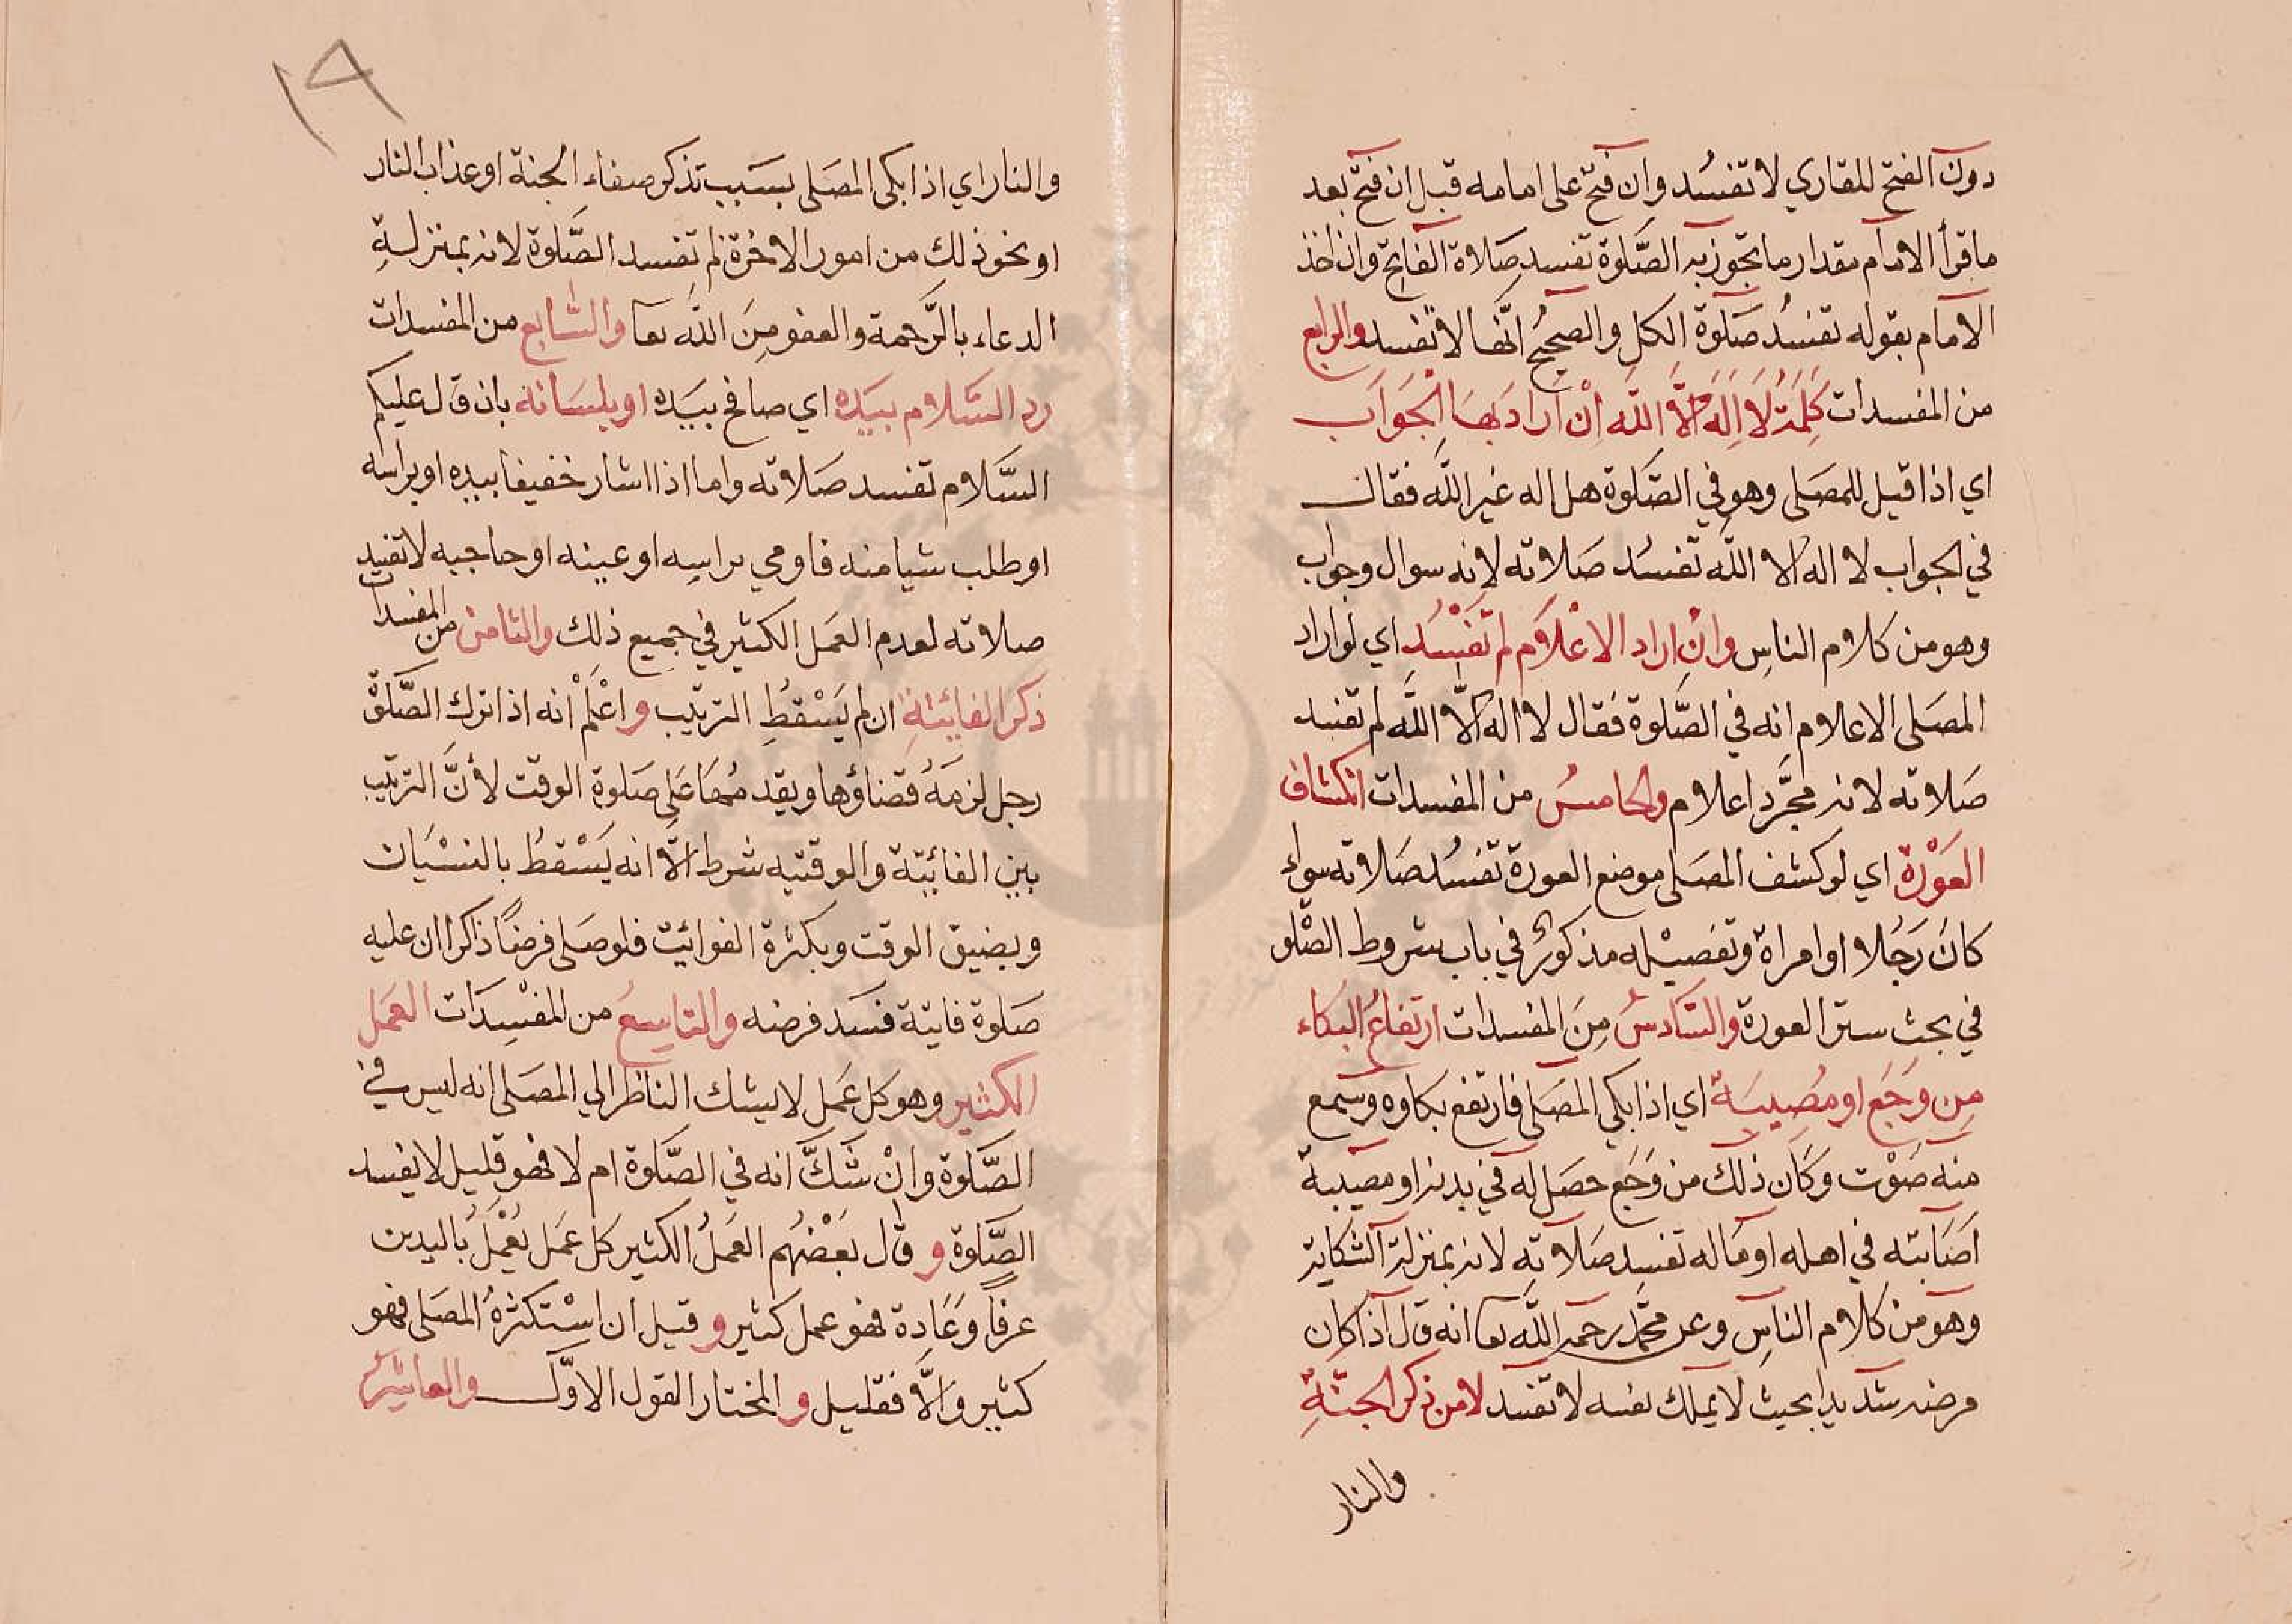 دون الفتح للقاري لا تفسُد وان فتح على امامه قبل ان فتح بعد
ما قرأ الامام مقدار ما تجوز به الصَّلوة تفسد صَلاة الفاتح وان اخذ
الامام بقوله تفسُد صَلوة الكل والصحيحُ انَّها لا تفسد والرابع
من المفسدات كَلِمَةُ لَا اِلَهَ اِلَّا اللَّه اِنْ اَرَادَ بهَا الْجَوَاب
اي اذا قيل للمصَلى وهو في الصَّلوة هل اله غير اللَّه فقال
في الجواب لا اله الا اللَّه تفسُد صَلاته لانه سوال وجواب
وهو من كلام الناسِ وانِ اراد الاعْلَام لم تَفْسُد اي لو اراد
المصَلى الاعلام انه في الصَّلوة فقال لا اله الَّا اللَّه لم تفسد
صَلاته لانه مجَّرد اعلام والخامسُ من المفسدات انكشاف
العَوْرة اي لو كشف المصَلى موضع العورة تفسُد صَلاته سواء
كانَ رَجُلا او امراة وتفصيْله مذكورٌ في باب شروط الصّلو
في بحث ستر العورة والسَّادسُ مِنَ المفسدات ارتفاعُ البكاء
مِن وَجَع او مُصِيبَة اي اذا بكي المصَلى فارتفع بكاوه وسمع
منه صَوْت وكَان ذلك من وَجَع حصَل له في بدنه او مصيبة
اَصَابته في اهله او مَاله تفسِد صَلاته لانه بمنزلة الشكاية
وهو من كلام الناسِ وعن محمَّد رحمه اللَّه تعا انه قال اذا كان
مرضه شديدا بحيث لا يملك نفسه لا تفسد لا من ذكر الجنَّةِ
والنار
١٩
والنار اي اذا بكى المصَلى بسَبب تذكر صفاء الجنة او عذاب النار
او نحو ذلك من امور الاخرة لم تفسد الصَّلوة لانه بمنزلةِ
الدعاء بالرَّحمة والعفو مِنَ اللَّه تعا والسَّابع من المفسدات
رد السَّلام بيَده اي صافح بيَده او بلِسَانه بان قال عليكم
السَّلام تفسد صَلاته واما اذا اشار خفيفا بيده او براسه
او طلب شيا منه فاومي براسِه او عينه او حاجبه لا تفسد
صلاته لعدم العَمل الكثير في جميع ذلك والثامن من المفسدات
ذكر الفائيتةِ ان لم يَسْقطِ الترتيب واعْلَمْ انه اذا ترك الصَّلوة
رجل لزمَهُ قضاؤها ويقدمُها عَلى صَلوة الوقت لأنَّ الترتيب
بين الفائيتة والوقتيه شرط الَّا انه يَسْقطُ بالنسْيَان
وبضيق الوقت وبكثرة الفوائيت فلو صَلى فرضاً ذاكرا ان عليه
صَلوة فايتة فسَد فرضه والتاسِعُ من المفسِدَات العَمل
الكثير وهو كل عَمل لا يشك الناظر الي المصَلى انه ليس في
الصَّلوة وانْ شَكَّ انه في الصَّلوة ام لا فهو قليل لا يفسد
الصَّلوة و قال بَعْضهُم العَملُ الكثير كل عَمل يُعْمَلُ باليدين
عرفاً وَعَادة فهو عمل كثير و قيل ان اسْتكثرهُ المصَلى فهو
كثير وَالَّا فقليل و المختار القول الاوَّل والعاشرُ